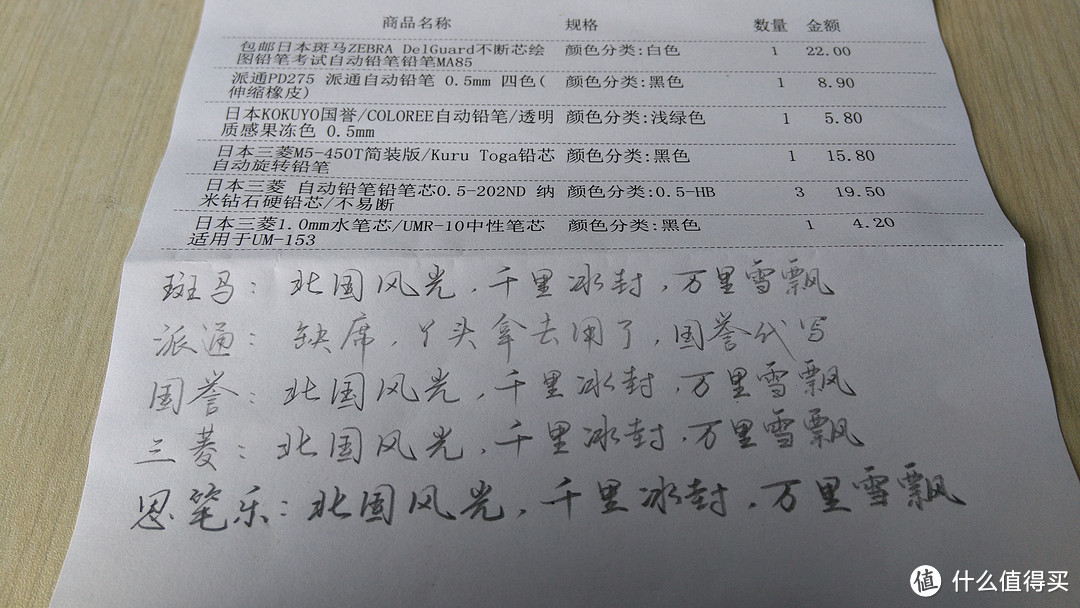 商品名称 规格 数量 金额
包邮日本斑马ZEBRA DelGuard不断芯绘 颜色分类:白色 1 22.00
图铅笔考试自动铅笔铅笔MA85
派通PD275 派通自动铅笔 0.5mm 四色( 颜色分类:黑色 1 8.90
伸缩橡皮)
日本KOKUYO国誉/COLOREE自动铅笔/透明 颜色分类:浅绿色 1 5.80
质感果冻色 0.5mm
日本三菱M5-450T简装版/Kuru Toga铅芯 颜色分类:黑色 1 15.80
自动旋转铅笔
日本三菱 自动铅笔铅笔芯0.5-202ND 纳 颜色分类:0.5-HB 3 19.50
米钻石硬铅芯/不易断
日本三菱1.0mm水笔芯/UMR-10中性笔芯 颜色分类:黑色 1 4.20
适用于UM-153
斑马：北国风光，千里冰封，万里雪飘
派通：缺席，丫头拿去用了，国誉代写
国誉：北国风光，千里冰封，万里雪飘
三菱：北国风光，千里冰封，万里雪飘
思笔乐：北国风光，千里冰封，万里雪飘
值 什么值得买